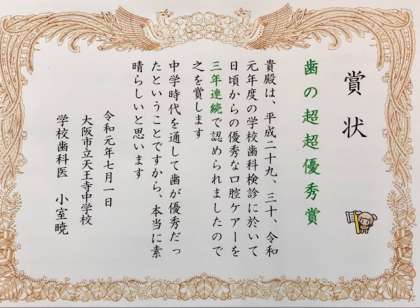 賞状
歯の超超優秀賞
貴殿は、平成二十九、三十、令和
元年度の学校歯科検診に於いて
日頃からの優秀な口腔ケアーを
三年連続で認められましたので
之を賞します
中学時代を通して歯が優秀だっ
たということですから、本当に素
晴らしいと思います
令和元年七月一日
大阪市立天王寺中学校
学校歯科医 小室暁